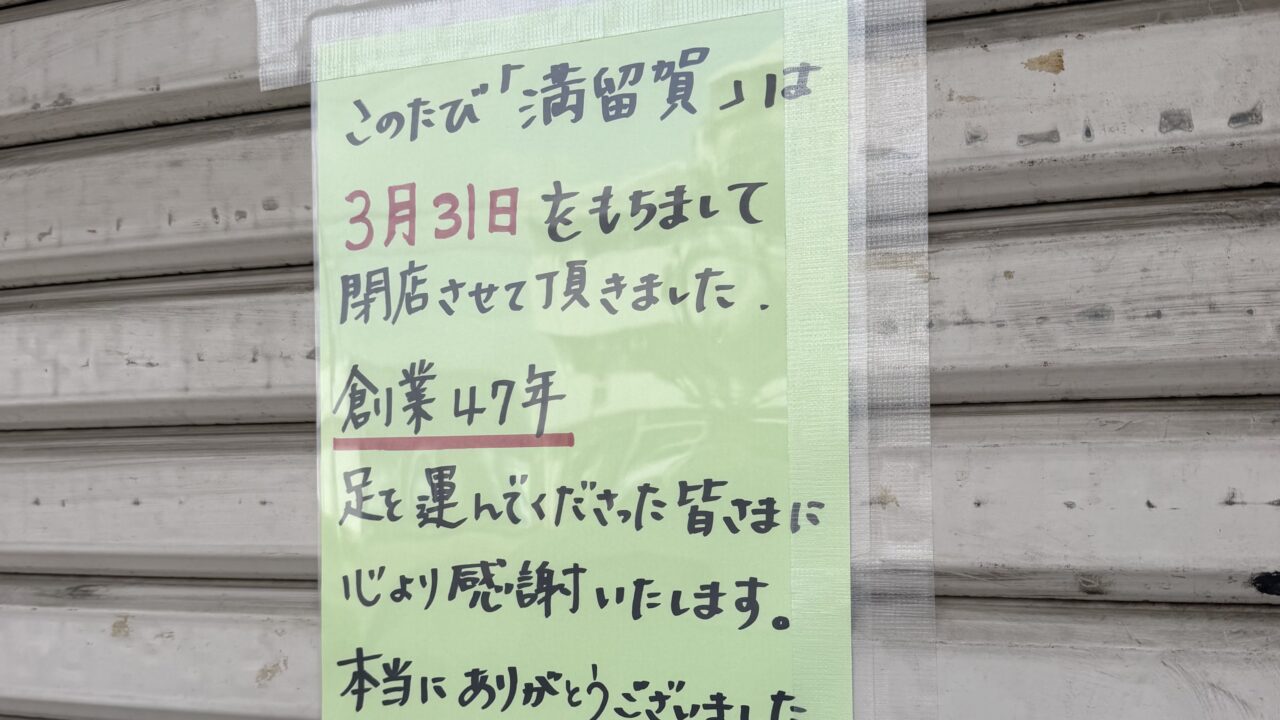 このたび「満留賀」は
3月31日をもちまして
閉店させて頂きました.
創業47年
足を運んでくださった皆さまに
心より感謝いたします。
本当にありがとうございました